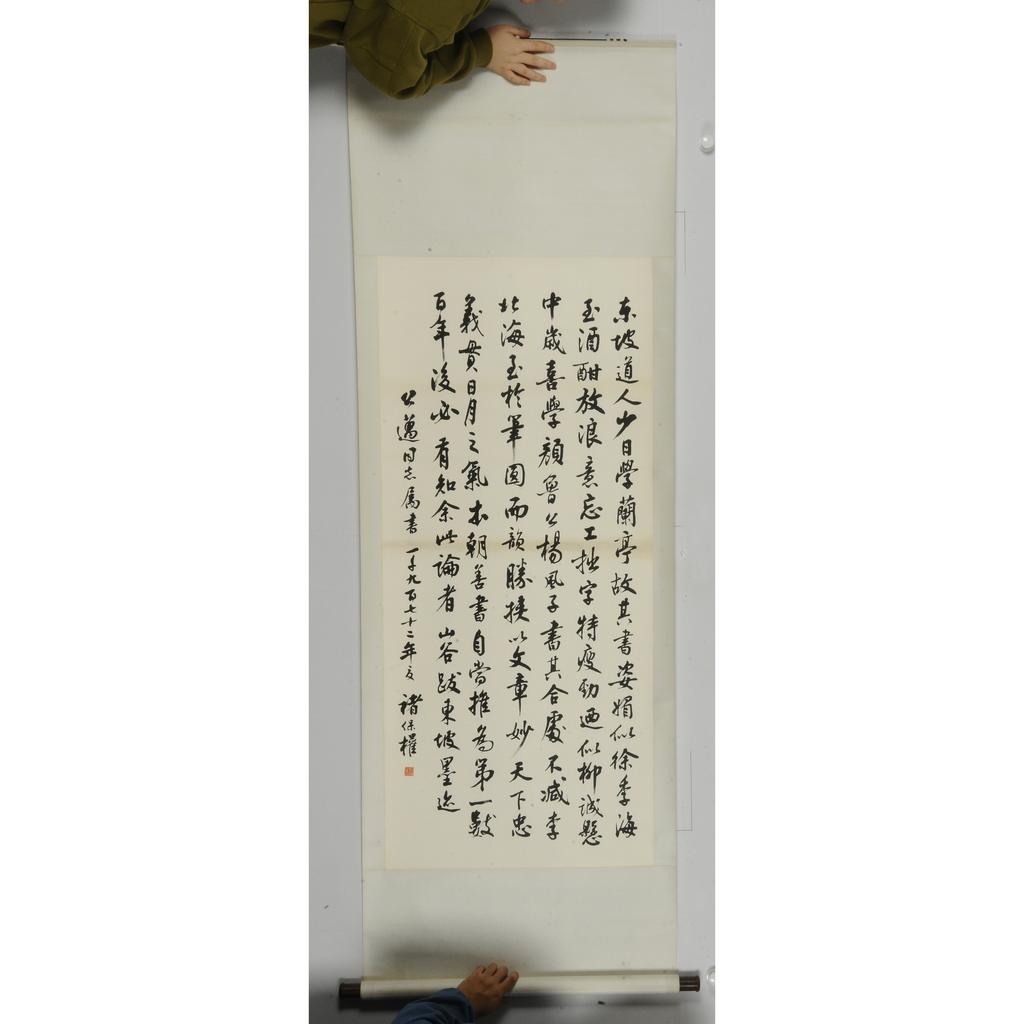 东坡道人少日學蘭亭故其書姿媚似徐季海
至酒酣放浪意忘工拙字特瘦勁迺似柳誠懸
中歲喜學顏魯公楊風子書其合處不減李
北海至於筆圓而韻勝挾以文章妙天下忠
義貫日月之氣本朝善書自當推為第一數
百年後必有知余此論者 山谷跋東坡墨迹
公邁同志属書 一千九百七十二年夏 褚保權